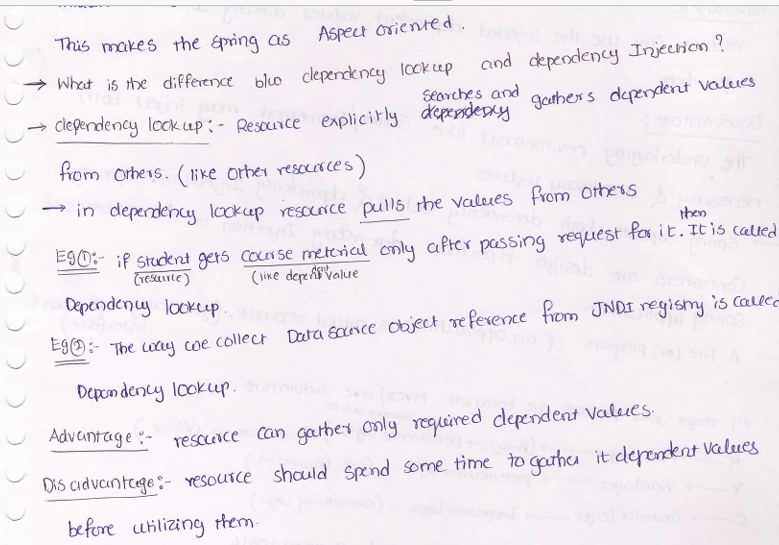 This makes the spring as Aspect oriented.
→ What is the difference b/w dependency lookup and dependency Injection?
→ dependency lookup :- Resource explicitly searches and gathers dependent values
from others. (like other resources)
→ in dependency lookup resource pulls the values from others
Eg①:- if student gets course meterial only after passing request for it. then It is called
(resource) (like dependent value
Dependency lookup.
Eg②:- The way we collect Data source object reference from JNDI registry is called
Dependency lookup.
Advantage :- resource can gather only required dependent values.
Disadvantage:- resource should spend some time to gather it dependent values
before utilizing them.